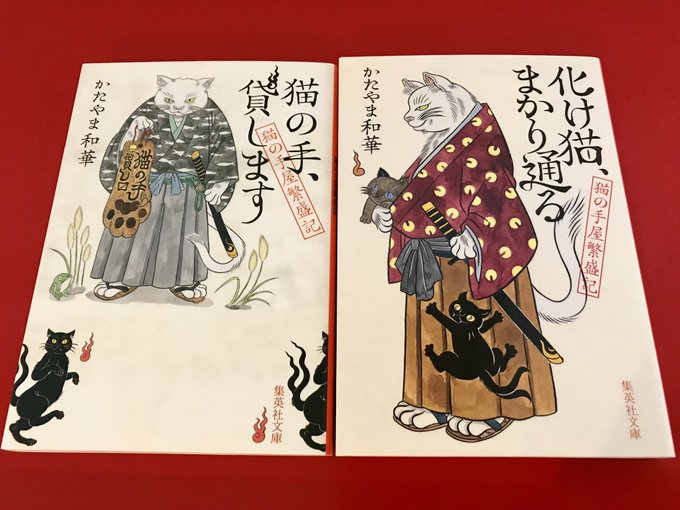 猫の手、
貸します
猫の手屋繁盛記
かたやま和華
猫の手
貸し〼
集英社文庫
化け猫、
まかり通る
猫の手屋繁盛記
かたやま和華
集英社文庫